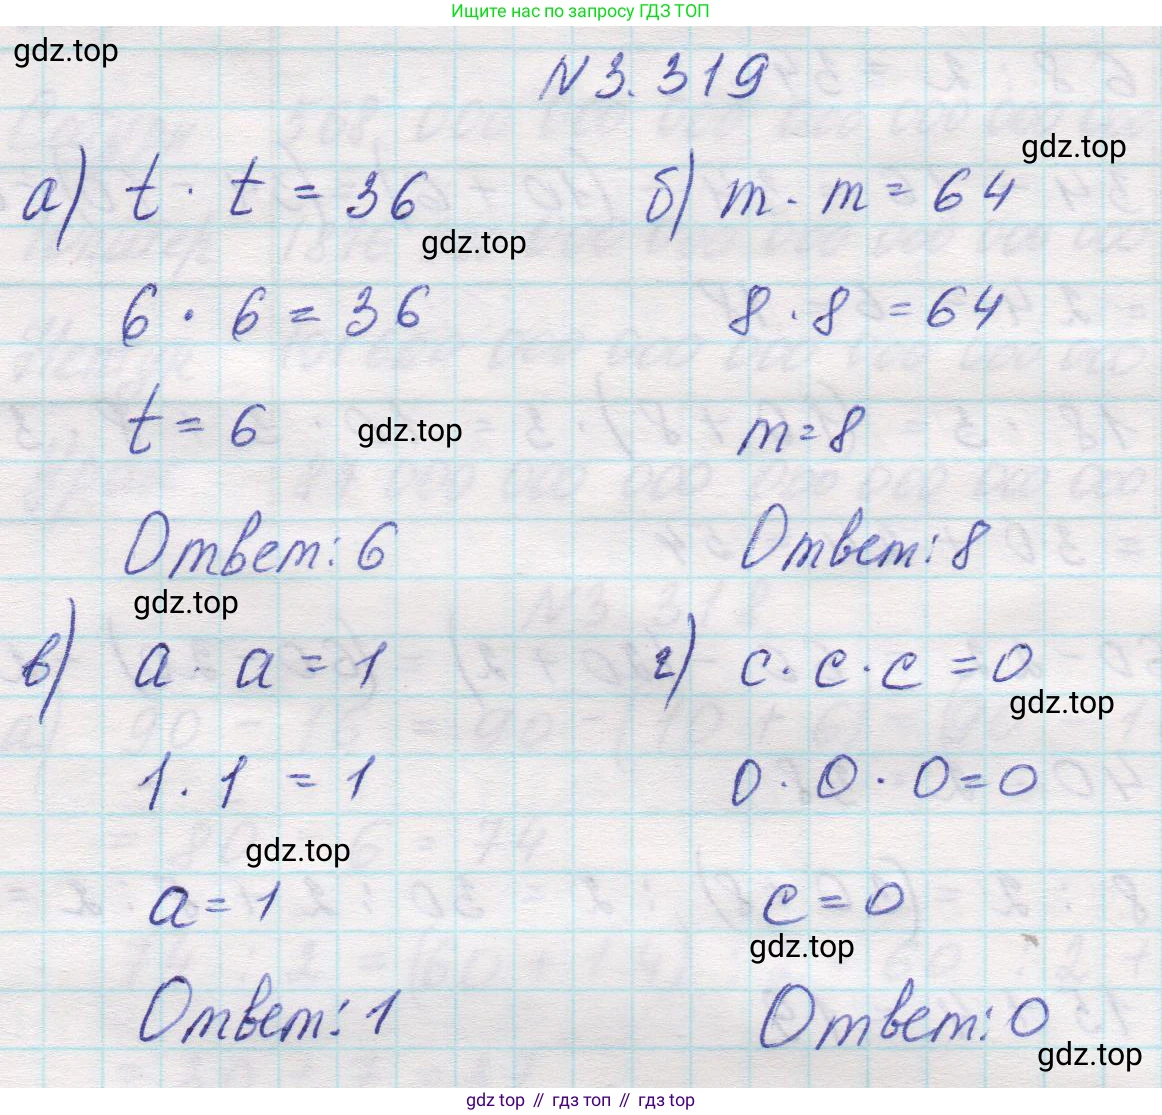 Ищите нас по запросу ГДЗ ТОП
gdz.top
N 3.319
а) t · t = 36
gdz.top
6 · 6 = 36
t = 6
gdz.top
Ответ: 6
gdz.top
б) m · m = 64
gdz.top
8 · 8 = 64
m = 8
Ответ: 8
в) a · a = 1
1 · 1 = 1
gdz.top
a = 1
Ответ: 1
г) c · c · c = 0
gdz.top
0 · 0 · 0 = 0
c = 0
gdz.top
Ответ: 0
gdz.top
gdz top // гдз топ // gdz top